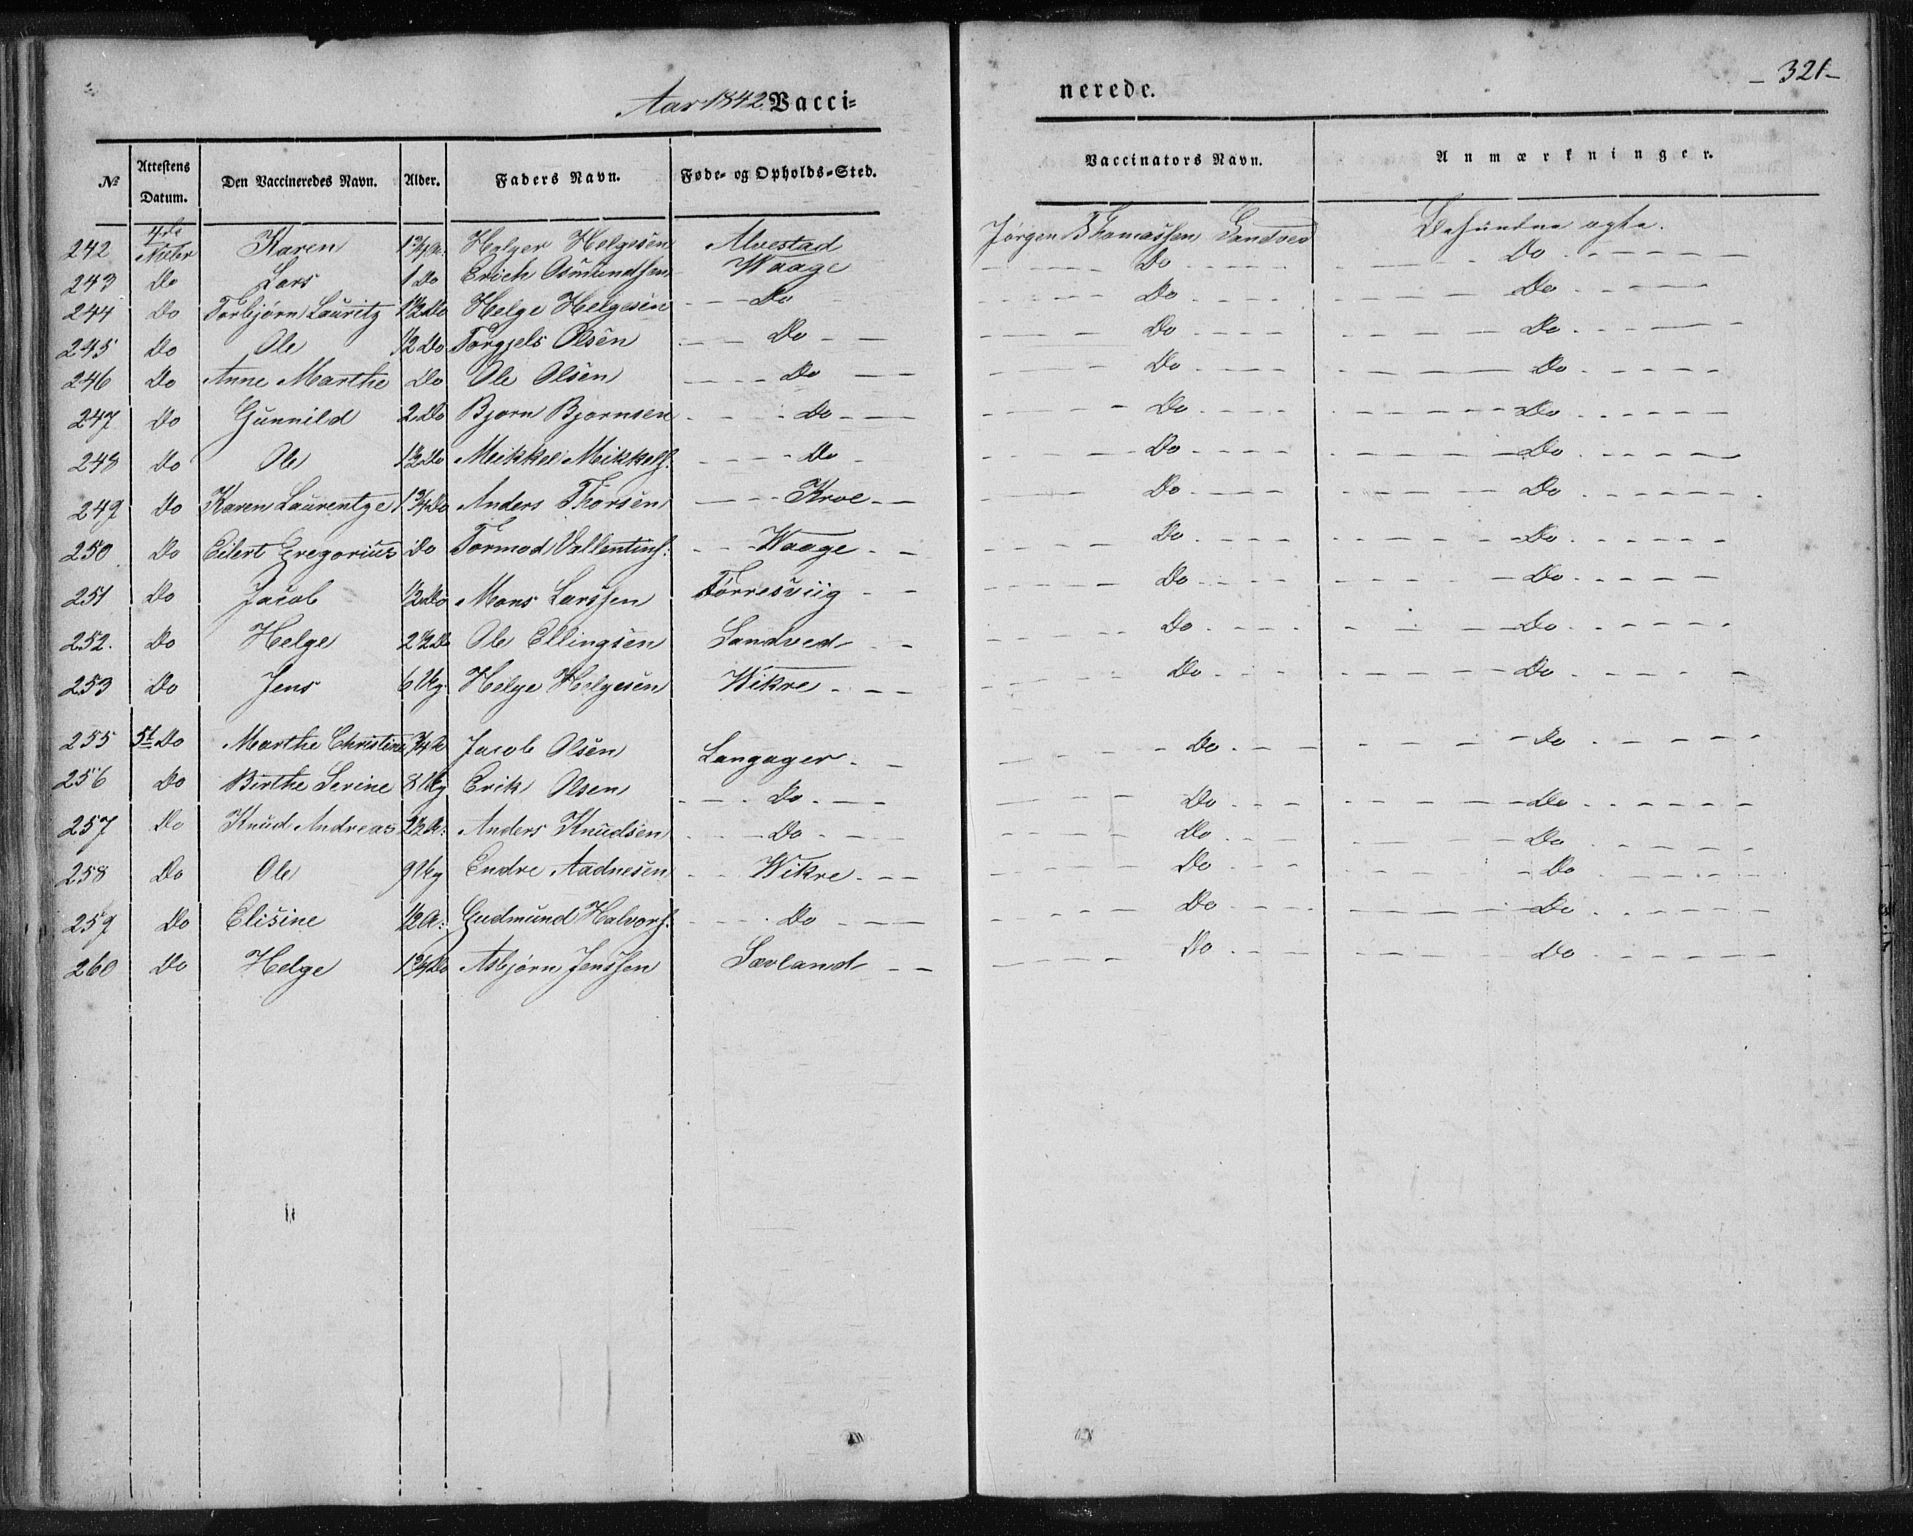 Aar 1842. Vacci= nerede. - 321 -
No Attestens Datum. Den Vaccineredes Navn. Alder. Faders Navn. Føde- og Opholds-Sted. Vaccinators Navn. Anmærkninger.
242 4de Karen 1 3/4 A. Holger Helgesen Alvestad Jørgen Thomassen Sandved Befunden ægte.
243 Do Lars 1 Do Erich Osmundsen Waage Do Do
244 Do Torbjørn Lauritz 1 1/2 Do Helge Helgesen Do Do Do
245 Do Ole 1/2 Do Torgjels Olsen Do Do Do
246 Do Anne Marthe Do Ole Olsen Do Do Do
247 Do Gunnild 2 Do Bjørn Bjørnsen Do Do Do
248 Do Ole 1 1/2 Do Mikkel Mikkels. Do Do Do
249 Do Karen Laurentze 1 3/4 Do Anders Thorsen Kroe Do Do
250 Do Eilert Gregorius Do Tormod Vallentins. Waage Do Do
251 Do Jacob 1/2 Do Mons Larssen Tørresviig Do Do
252. Do Helge 2 1/2 Do Ole Ellingsen Sandved Do Do
253 Do Jens 6 Ug. Helge Helgesen Wikre Do Do
255 5t Do Marthe Christine 3/4 A Jacob Olsen Langager Do Do
256 Do Birthe Serine 8 Ug Erik Olsen Do Do Do
257 Do Knud Andreas 2 1/2 A. Anders Knudsen Do Do Do
258 Do Ole 9 Ug Endre Aadnesen Wikre Do Do
259 Do Elisine 1/2 A. Gudmund Halvors. Do Do Do
260 Do Helge 1 3/4 Do Asbjørn Jenssen Sævland Do Do